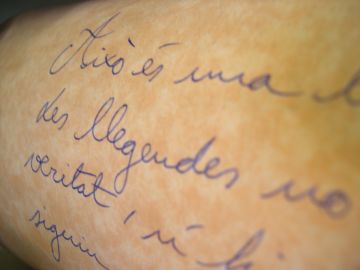 Això és una
les llegendes no
veritat, ni
siguin